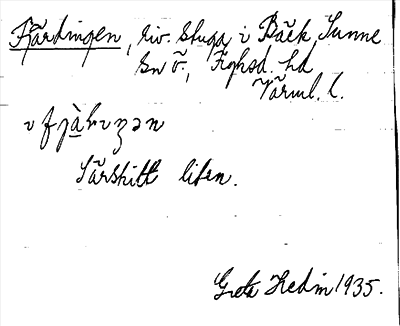 Fjärdingen, riv. stuga i Bäck, Sunne
sn ö., Fryksd. hd
Värml. l.
Särskilt liten.
Greta Hedin 1935.